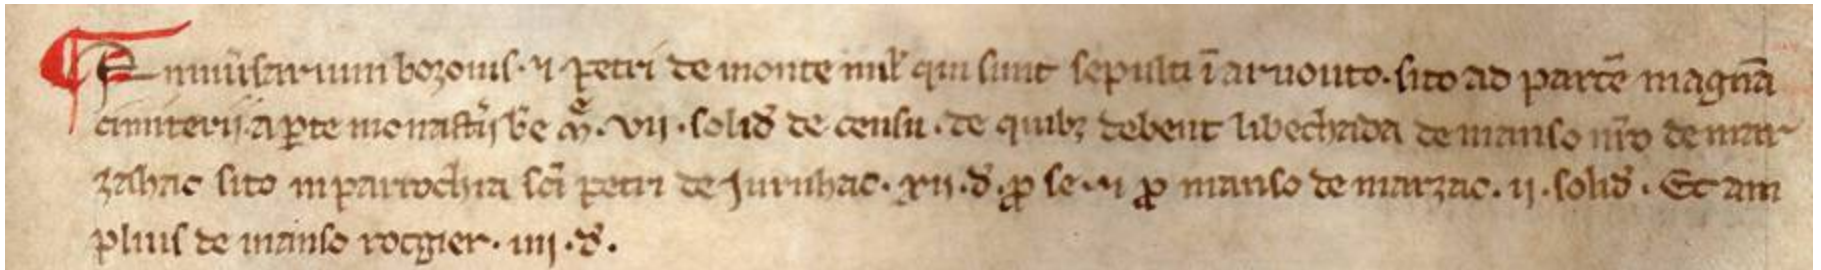 ¶ Anniũsarium bozonis · ⁊ petri de monte mil̃ qui sunt sepulti ĩ aruouto · sito ad partẽ magnã
cimiterii · a ꝑte monastĩj bẽ m̃ · vii · solid̃ de censu · de quibꝫ debent libechada de manso nr̃o de mar
zahac sito in parrochia sc̃i petri de Jurnhac · xii · d̃ · ꝓ se · ⁊ ꝓ manso de marzac · ij · solid̃ · Et am
plius de manso rocgier · iiij · d̃ ·